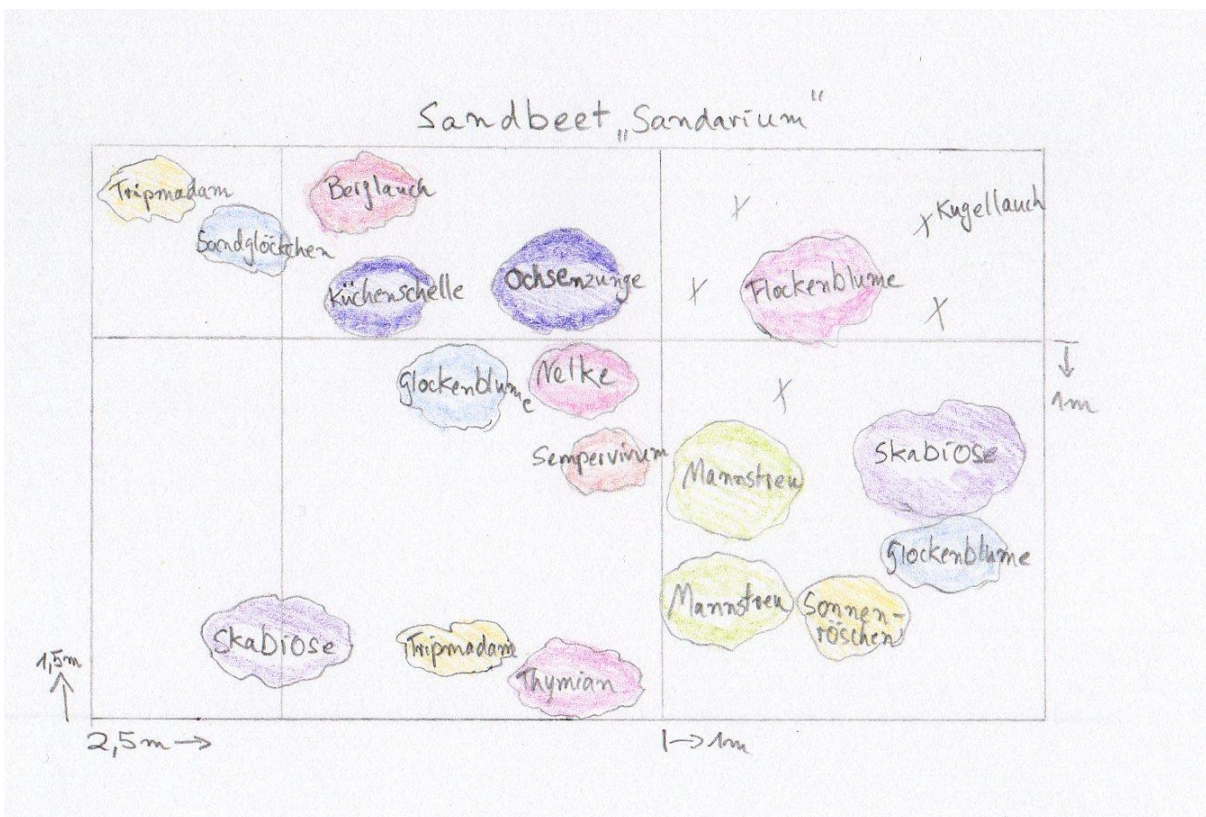 Sandbeet „Sandarium“
Tripmadam
Berglauch
Kugellauch
Sandglöckchen
Küchenschelle
Ochsenzunge
Flockenblume
Glockenblume
Nelke
1m
Sempervivum
Mannstreu
Skabiose
Glockenblume
Mannstreu
Sonnen-
röschen
Skabiose
Tripmadam
Thymian
1,5m
2,5m
1m